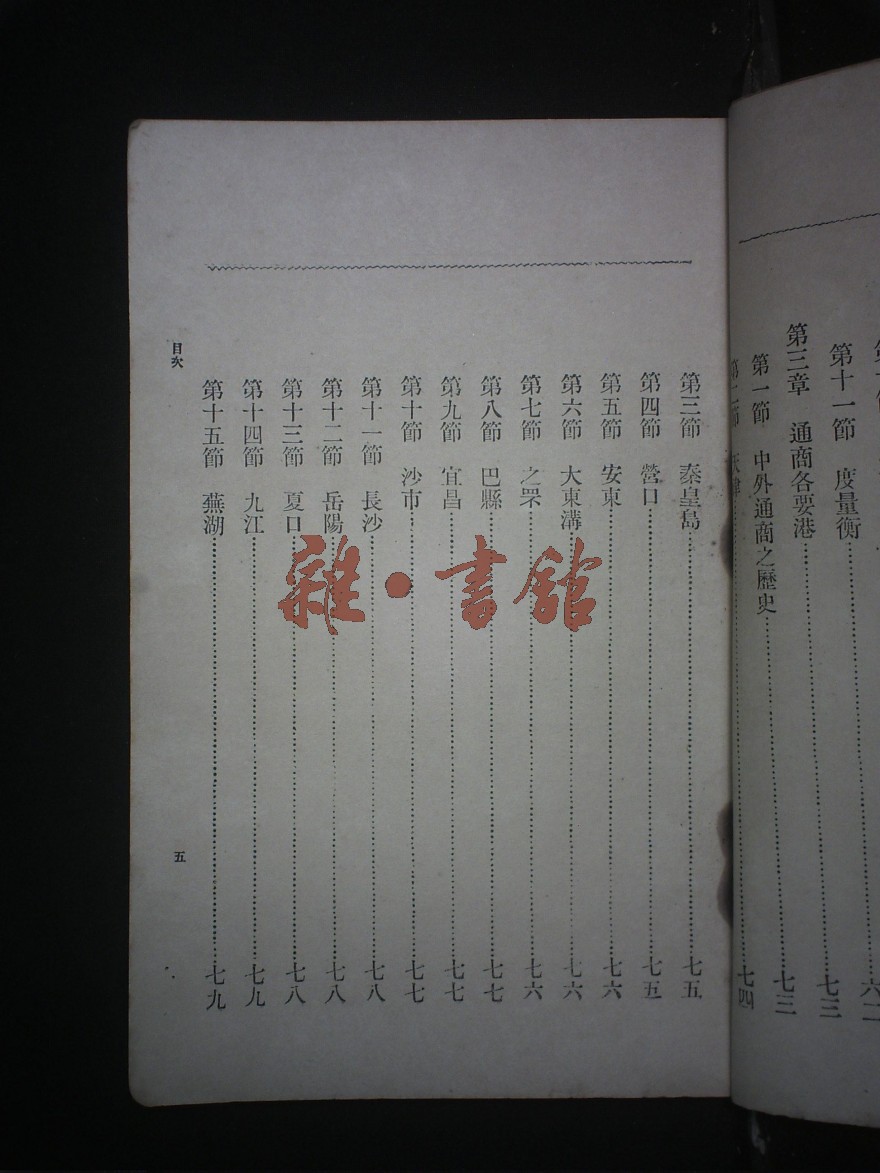 第十一節 度量衡……七三
第三章 通商各要港……七三
第一節 中外通商之歷史……七四
第二節 天津……
第三節 秦皇島……七五
第四節 營口……七五
第五節 安東……七六
第六節 大東溝……七六
第七節 之罘……七六
第八節 巴縣……七七
第九節 宜昌……七七
第十節 沙市……七七
第十一節 長沙……七八
第十二節 岳陽……七八
第十三節 夏口……七八
第十四節 九江……七九
第十五節 蕪湖……七九
目次
五
雜·書館